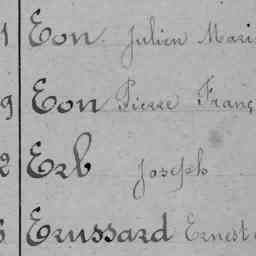 1 Eon Julien Mari
9 Eon Pierre Franç
2 Erb Joseph
Erussard Ernest